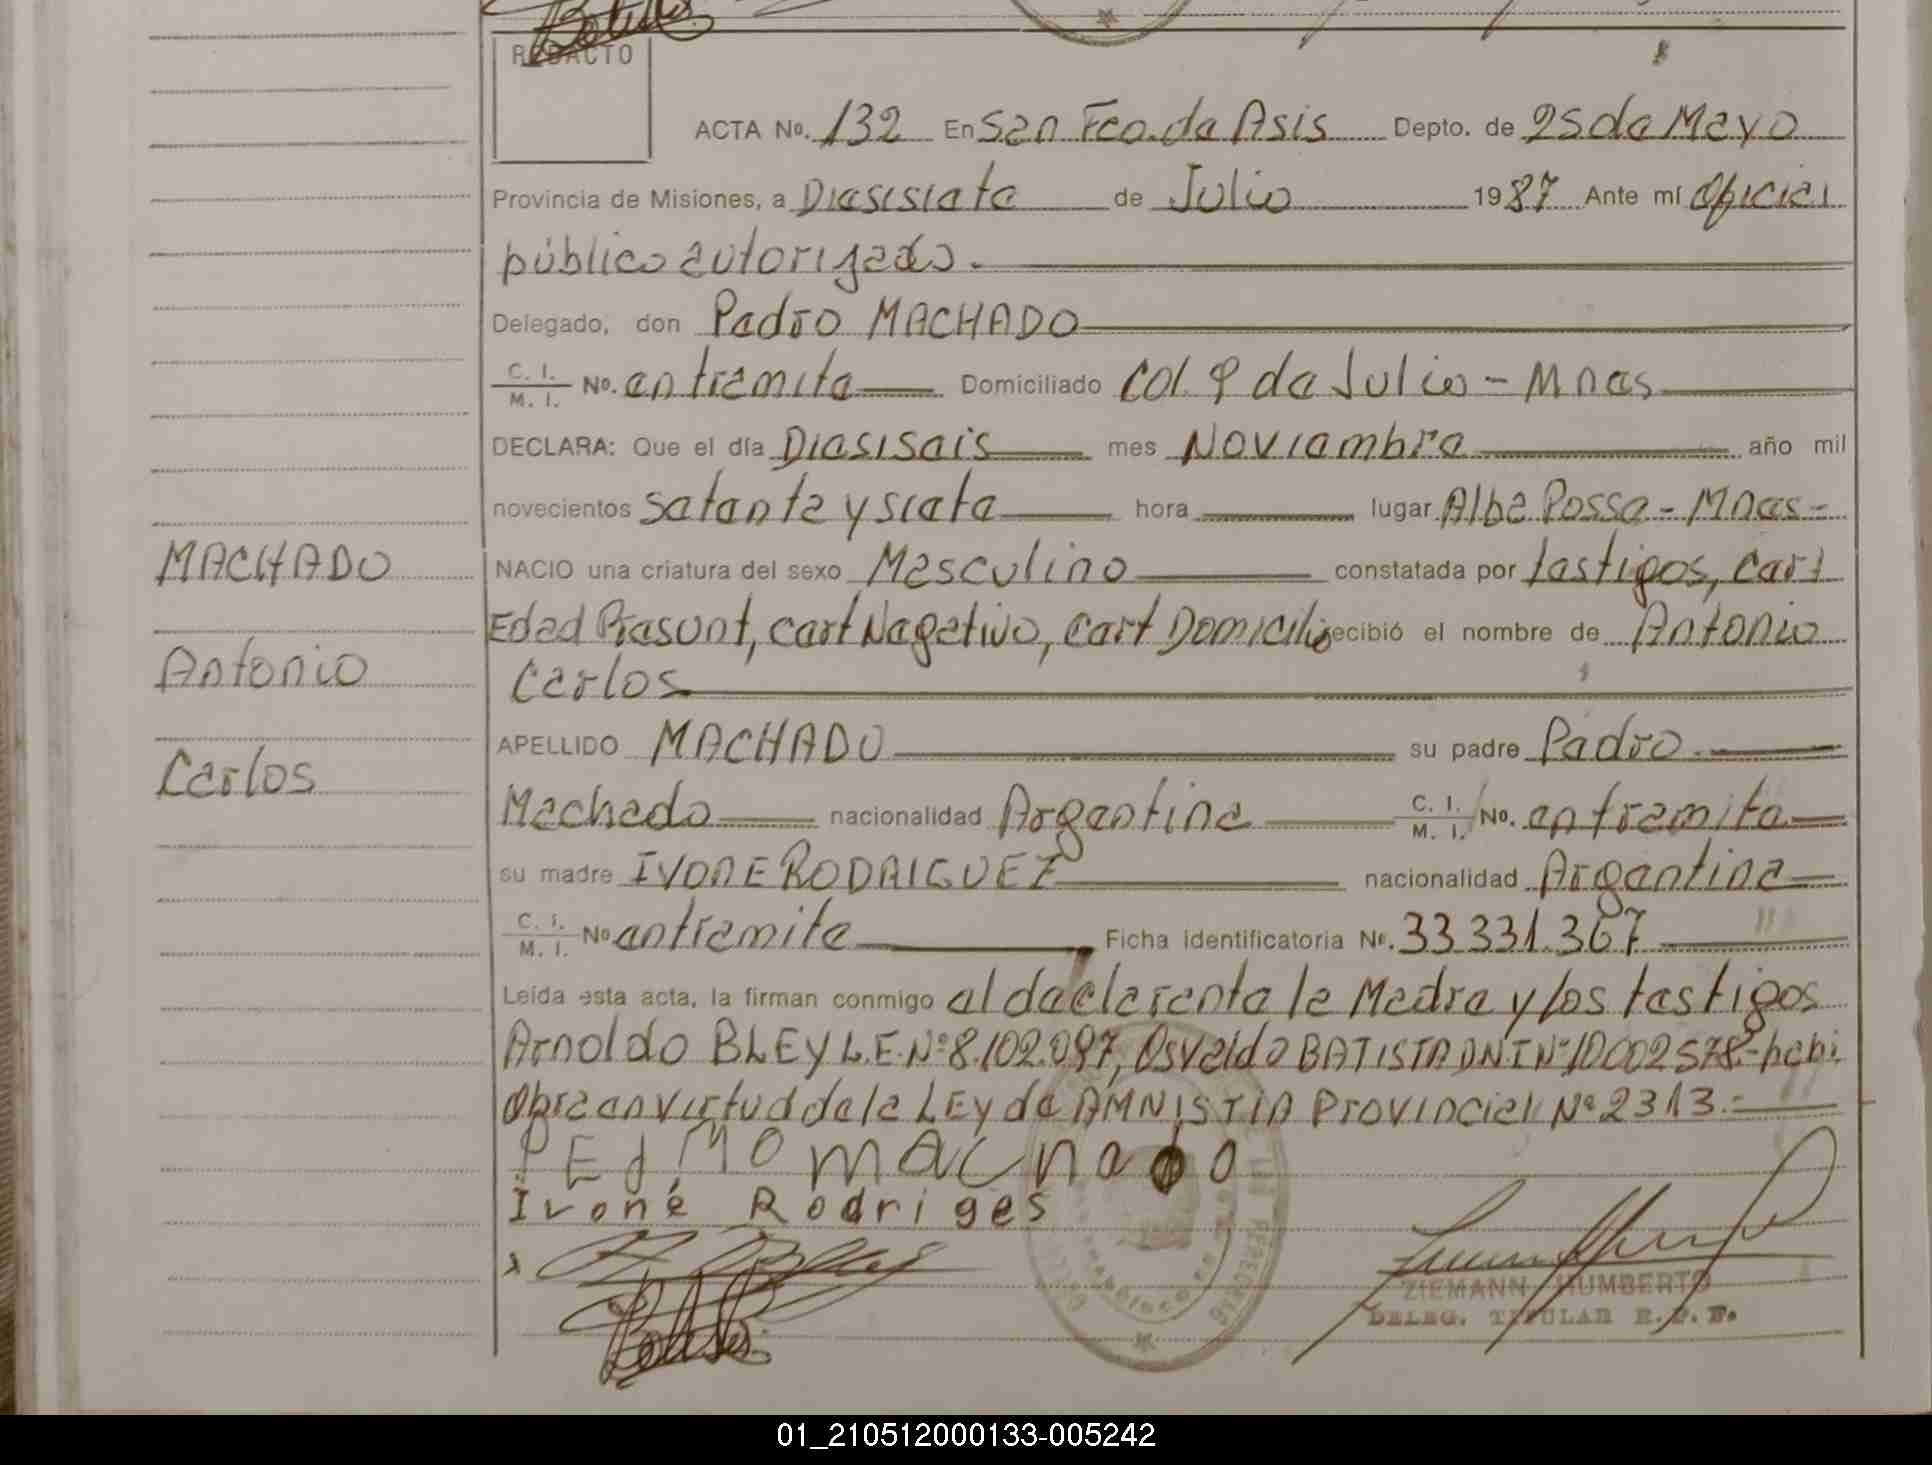 REDACTO
ACTA Nº. 132 En San Fco. de Asis Depto. de 25 de Mayo
Provincia de Misiones, a Diesisiete de Julio 1987 Ante mí Oficial
público autorizado.
Delegado, don Pedro MACHADO
C. I. / M. I. Nº. en tramite Domiciliado Col. 9 de Julio - Mnes
DECLARA: Que el día Diesiseis mes Noviembre año mil
novecientos setenta y siete hora lugar Alba Posse - Mnes -
MACHADO
NACIO una criatura del sexo Masculino constatada por testigos, Cert
Edad Presunt, cert Negativo, cert Domicilio recibió el nombre de Antonio
Antonio
Carlos
APELLIDO MACHADO su padre Pedro
Carlos
Machado nacionalidad Argentina C. I. / M. I. Nº. en tramite
su madre IVONE RODRIGUEZ nacionalidad Argentina
C. I. / M. I. Nº en tramite Ficha identificatoria Nº. 33.331.367
Leída esta acta, la firman conmigo el declarente la Madre y los testigos
Arnoldo BLEY L.E.Nº 8.102.097, Osvaldo BATISTA DNI Nº 10002578.-
Obra en virtud de la LEY de AMNISTIA Provincial Nº 2313.-
PEdrO mAcnado
Ivoné Rodriges
ZIEMANN HUMBERTO
DELEG. TITULAR R. P. P.
01_210512000133-005242